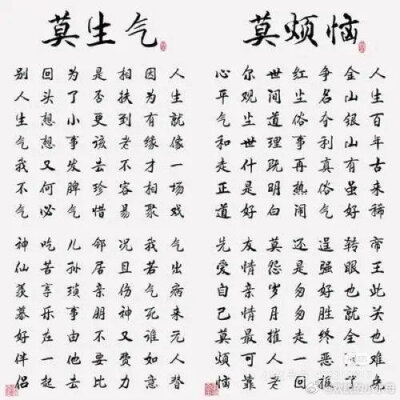 莫烦恼
人生百年古来稀
金山银山有虽好
争名夺利真俗气
红尘俗事再热闹
世间道理既明白
尔观尘世什是好
心平气和走正道
帝王此关也难来
转眼也就全
逞强好胜
还是勿勿走一回
莫怨岁月催人老
友情亲情最可靠
先爱自己莫烦恼
莫生气
人生就像一场戏
因为有缘才相聚
相扶到老不容易
是否更该去珍惜
为了小事发脾气
回头想想又何必
别人生气我不气
气出病来无人替
我若气死谁如意
况且伤神又费力
邻居亲朋不要比
儿孙琐事由他去
吃苦享乐在一起
神仙羡慕好伴侣